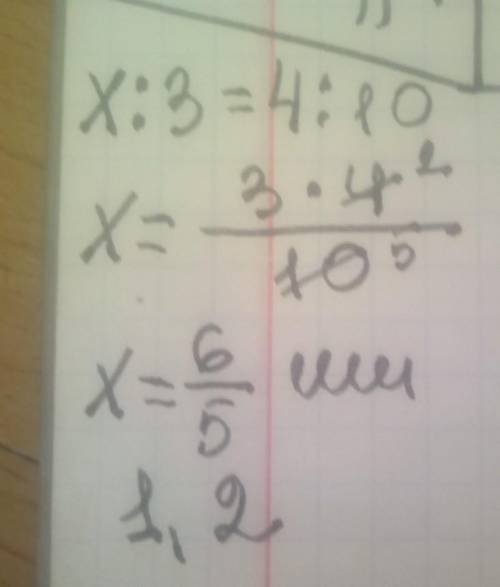 x:3=4:10
x= 3·4² / 10⁵
x= 6/5 или
1,2